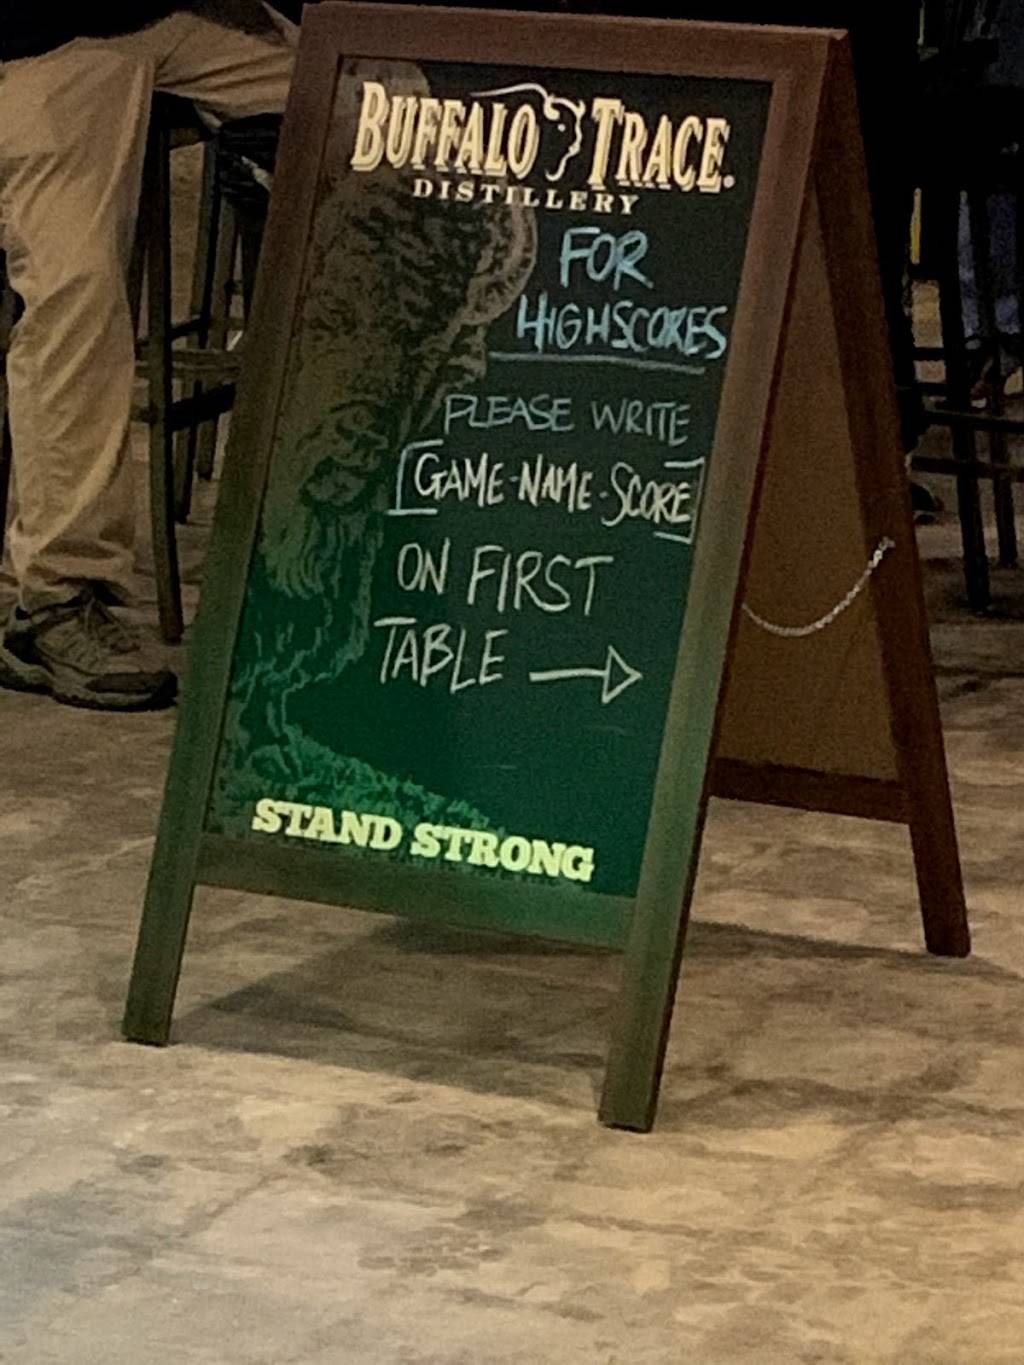 BUFFALO TRACE.
DISTILLERY
FOR
HIGHSCORES
PLEASE WRITE
[GAME-NAME-SCORE]
ON FIRST
TABLE →
STAND STRONG